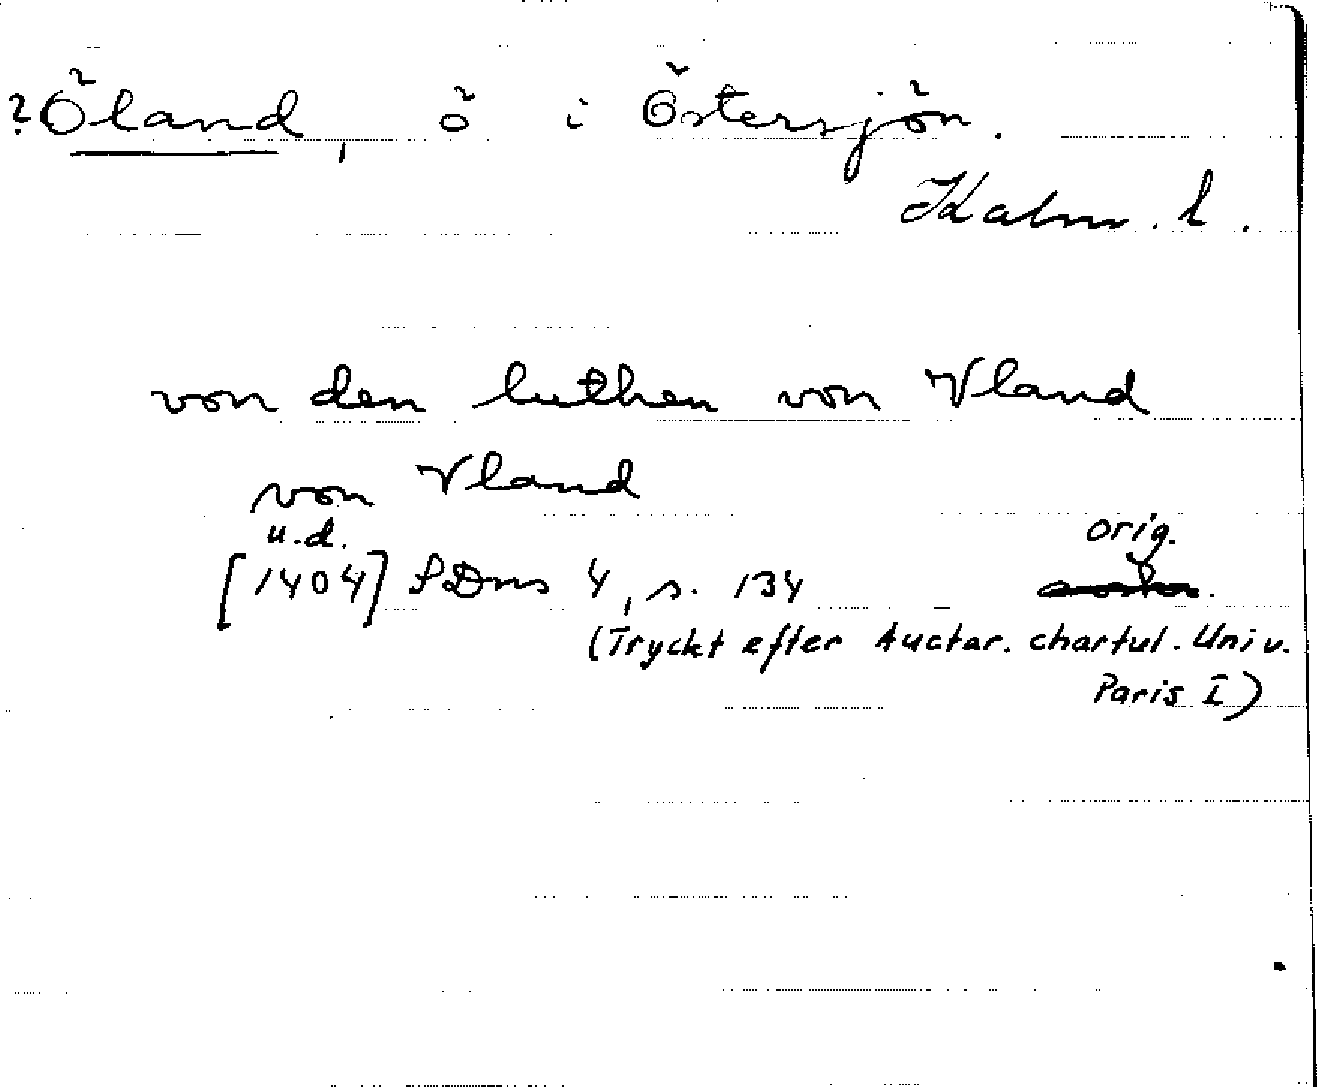 ?Öland, ö i Östersjön.
Kalm. l.
von den luthen von Vland
von Vland
u.d. orig.
[1404] SDns 4, s. 134
(Tryckt efter Auctar. chartul. Univ.
Paris I)